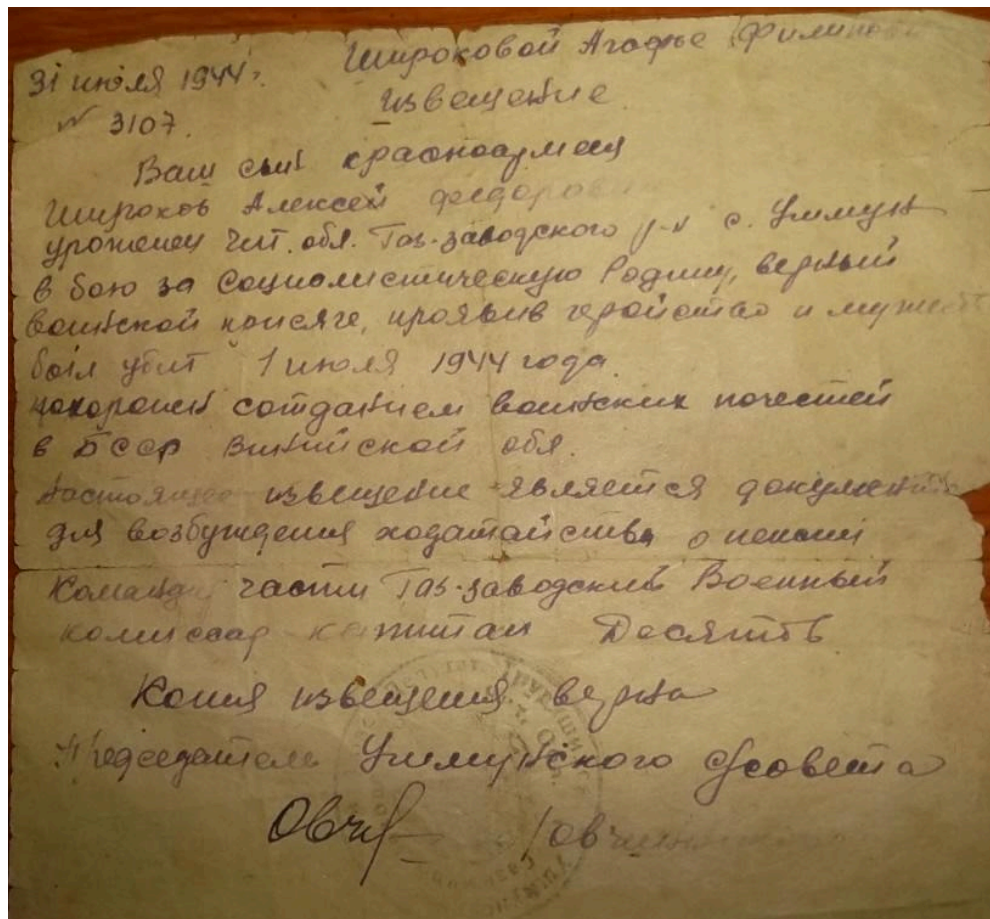 31 июля 1944г. Широковой Агафье Филипов
№ 3107. Извещение
Ваш сын красноармеец
Широков Алексей Федорови
уроженец Чит. обл. Газ-заводского р-н с. Ушмун
в бою за Социалистическую Родину, верный
воинской присяге, проявив геройство и мужеств
был убит 1 июля 1944 года.
похоронен сотданием воинских почестей
в БССР Винийской обл.
Настоящее извещение является документом
для возбуждения ходатайства о пенсии
Командир части Газ-заводский Военный
комиссар капитан Десятов
Копия извещения верна
Председатель Ушмунского с/совета
Овч /Овчин